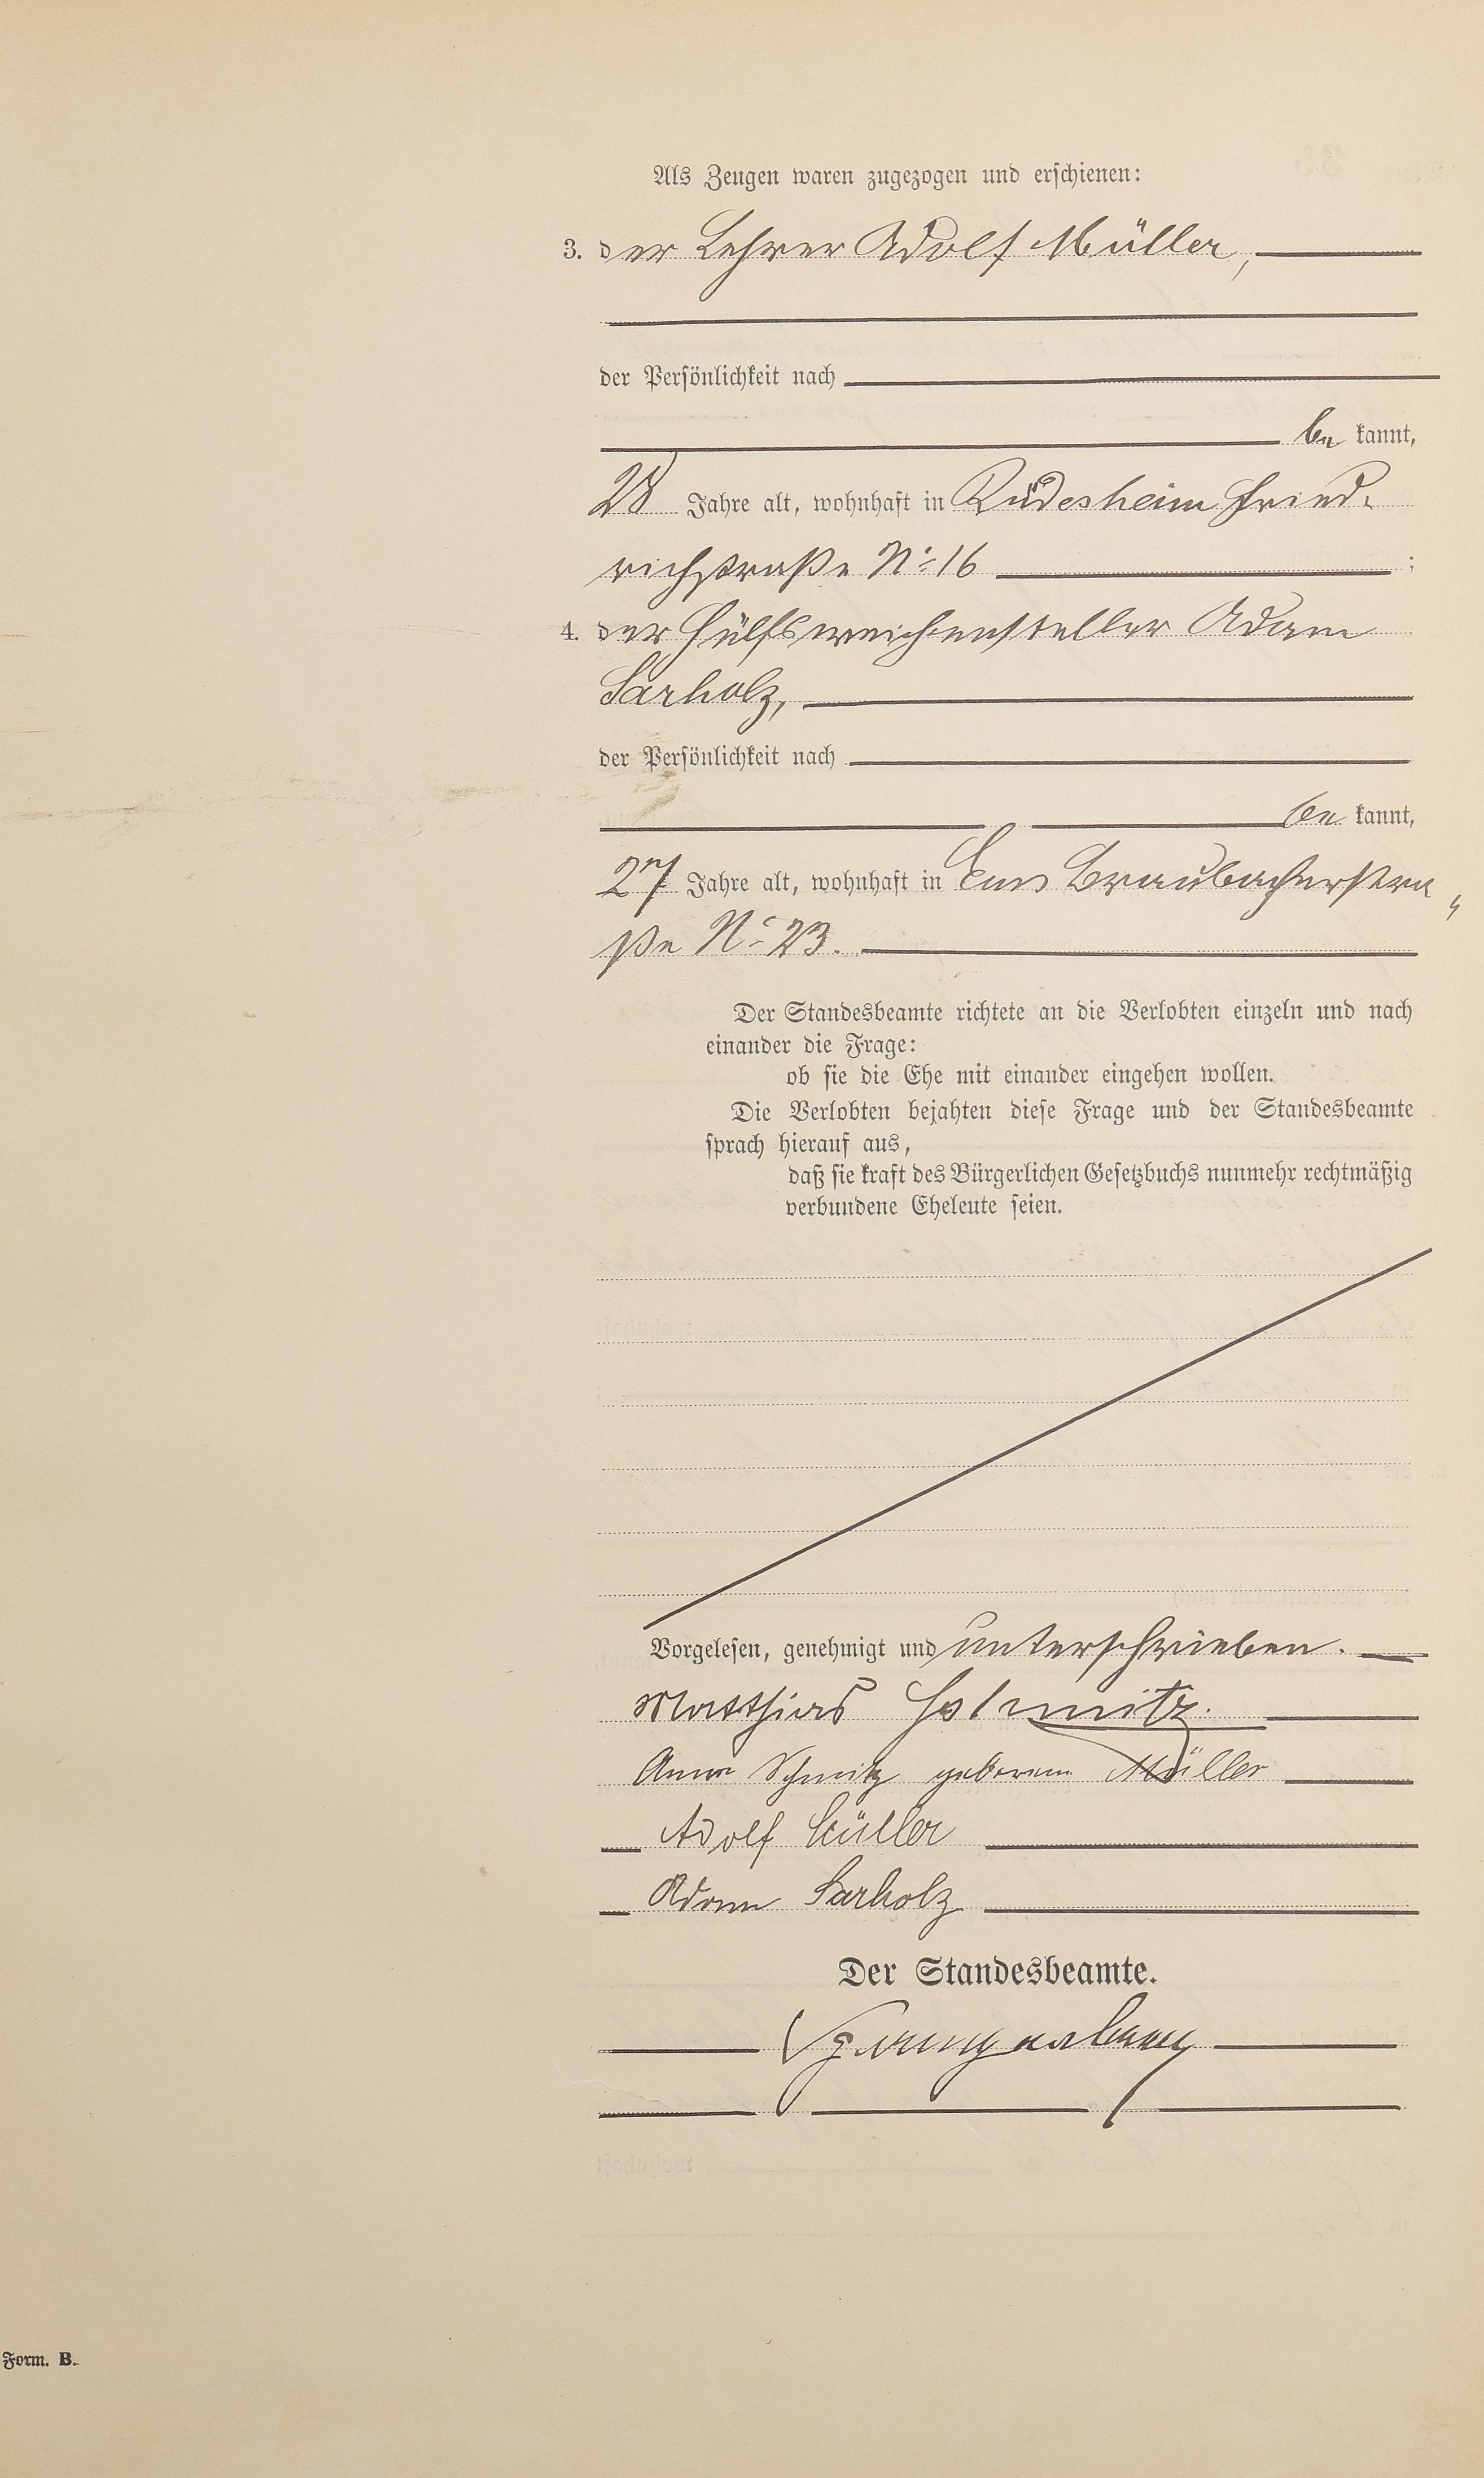 Als Zeugen waren zugezogen und erschienen:
3. der Lehrer Adolf Müller,
der Persönlichkeit nach
be kannt,
28 Jahre alt, wohnhaft in Rüdesheim Fried-
richstraße No 16 ;
4. der Hülfsweichensteller Adam
Sarholz,
der Persönlichkeit nach
be kannt,
27 Jahre alt, wohnhaft in Ems Braubacherstra„
ße No 23.
Der Standesbeamte richtete an die Verlobten einzeln und nach
einander die Frage:
ob sie die Ehe mit einander eingehen wollen.
Die Verlobten bejahten diese Frage und der Standesbeamte
sprach hierauf aus,
daß sie kraft des Bürgerlichen Gesetzbuchs nunmehr rechtmäßig
verbundene Eheleute seien.
Vorgelesen, genehmigt und unterschrieben.
Matthias Schmitz.
Anna Schmitz geborene Müller
Adolf Müller
Adam Sarholz
Der Standesbeamte.
Form. B.